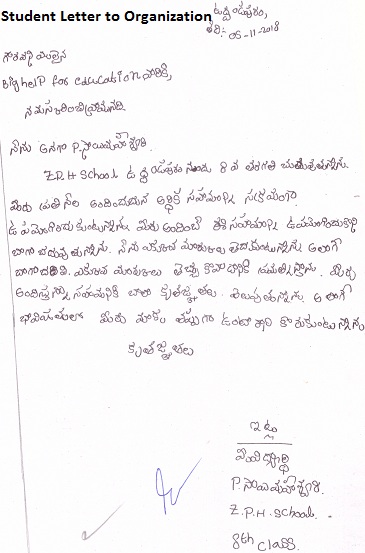 Student Letter to Organization
ఉద్దండపురం,
తేది:- 05-11-2018
గౌరవనీయులైన
Bighelp for education వారికి,
నమస్కరించి వ్రాయునది.
నేను అనగా P. సాయిమహేశ్వరి.
Z.P.H School ఉద్దండపురం నందు 8 వ తరగతి చదువుతున్నాను.
మీరు ప్రతి నెల అందించుచున్న ఆర్థిక సహాయాన్ని సక్రమంగా
ఉపయోగించుకుంటున్నాను. మీరు అందించే ఈ సహాయాన్ని ఉపయోగించుకొని
బాగా చదువుతున్నాను. నేను ఎక్కువ మార్కులు అలాగే
బాగా చదివి ఎక్కువ మార్కులు తెచ్చు కోవడానికి ప్రయత్నిస్తాను. మీరు
అందిస్తున్న సహాయానికి చాలా కృతజ్ఞతలు తెలుపుతున్నాను. అలాగే
భవిష్యత్తులో మీరు మాకు తప్పుగా ఉంటారని కోరుకుంటున్నాను
కృతజ్ఞతలు
ఇట్లు
విద్యార్థి
P. సాయిమహేశ్వరి.
Z.P.H. School.
8th Class.